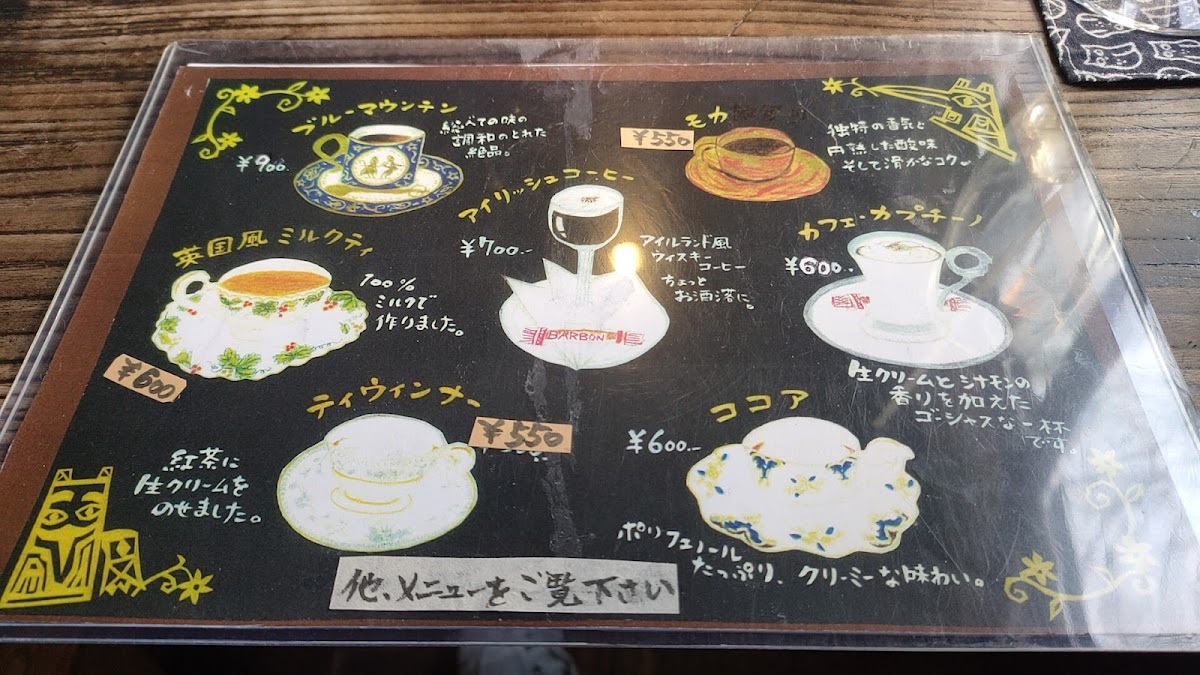 ブルーマウンテン
¥900.
総べての味の
調和のとれた
絶品。
¥550
モカ
独特の香気と
円熟した酸味
そして滑かなコク
アイリッシュコーヒー
¥700.-
アイルランド風
ウィスキー
コーヒー
ちょっと
お洒落に。
BARBON
カフェ・カプチーノ
¥600.-
生クリームとシナモンの
香りを加えた
ゴージャスな一杯
です。
英国風ミルクティ
100%
ミルクで
作りました。
¥600
ティウィンナー
¥550
紅茶に
生クリームを
のせました。
ココア
¥600.-
ポリフェノール
たっぷり、クリーミーな味わい。
他、メニューをご覧下さい